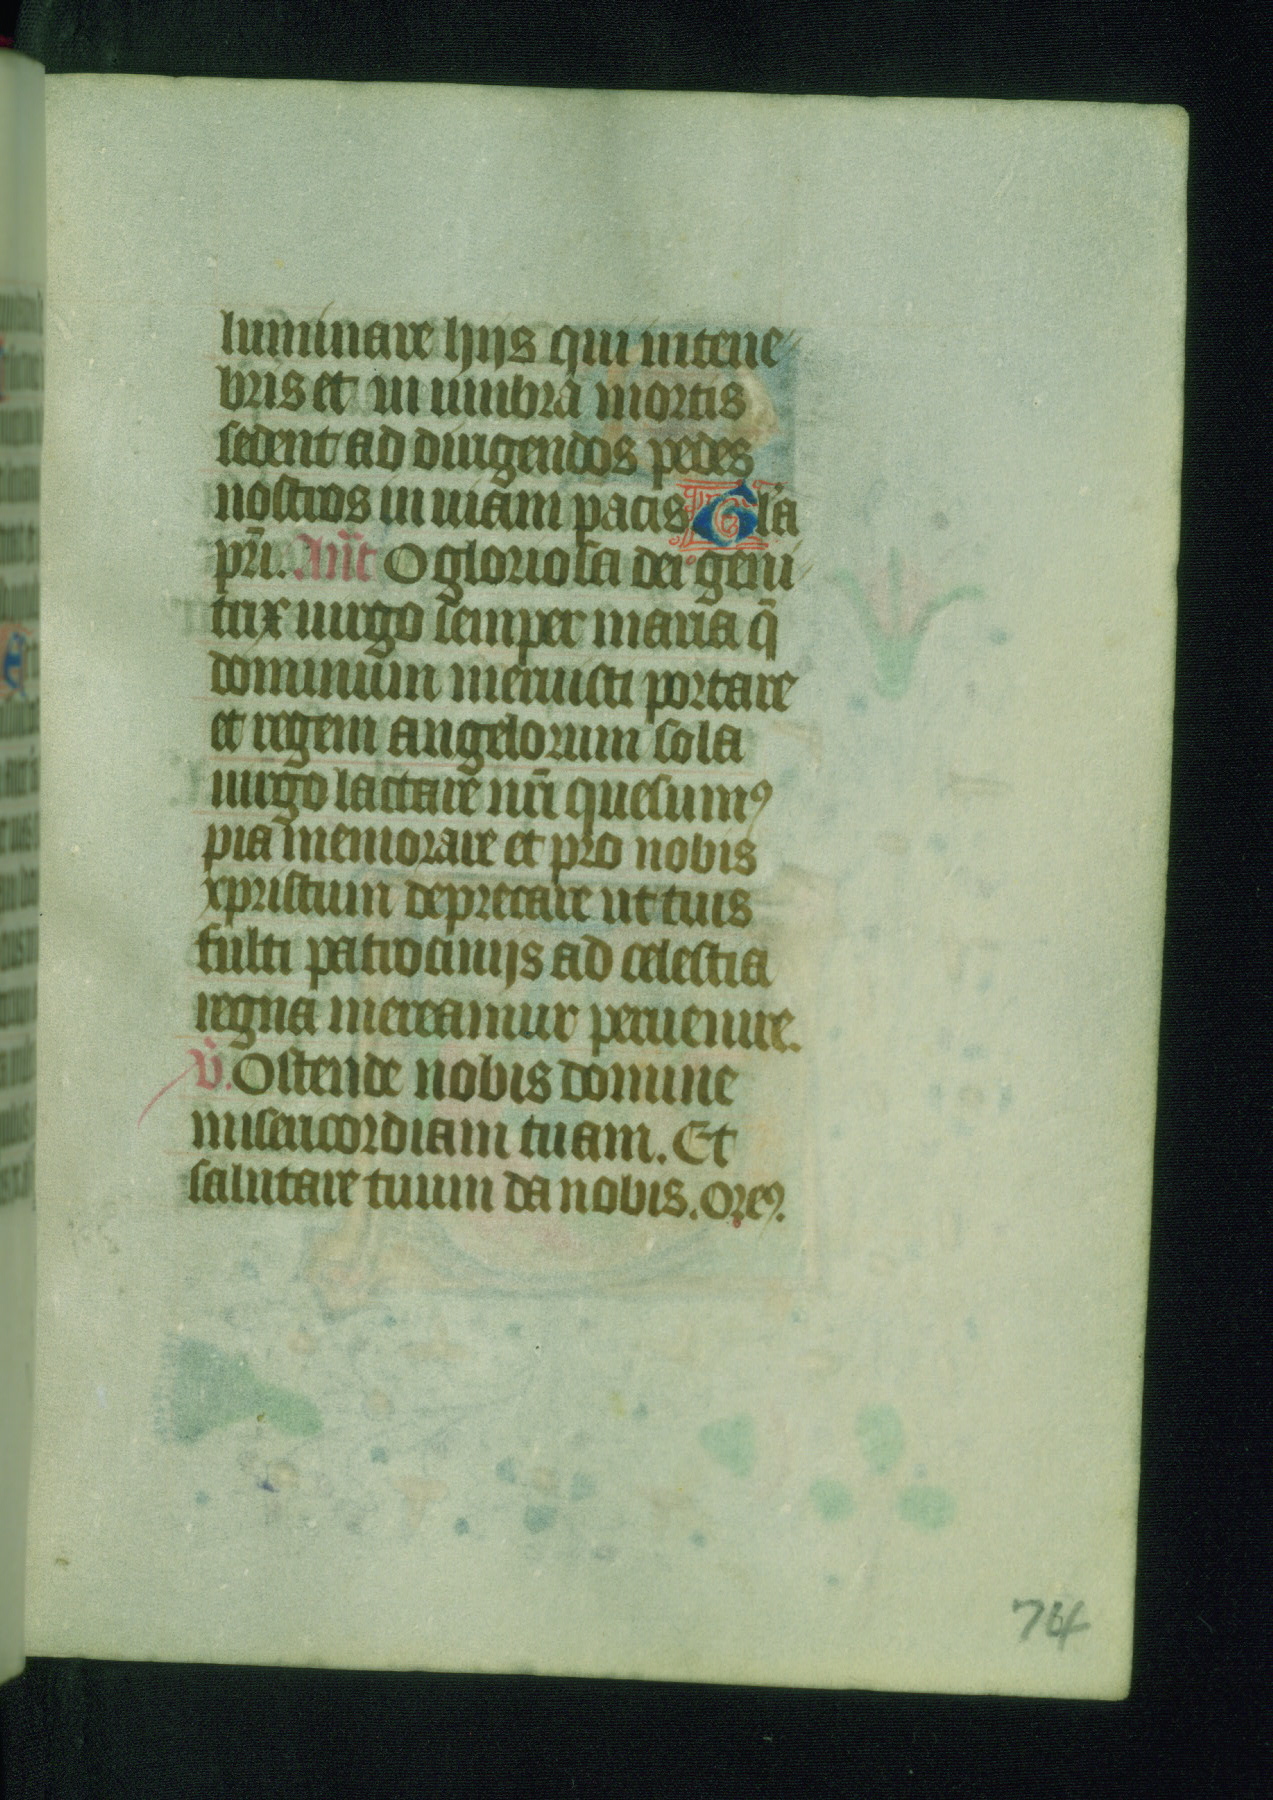 luminare hijs qui in tene
bris et in umbra mortis
sedent ad dirigendos pedes
nostros in uiam pacis Gl'a
pr̄i. Añt O gloriosa dei geni
trix uirgo semper maria q̄
dominum meruisti portare
et regem angelorum sola
uirgo lactare nr̄i quesumꝰ
pia memorare et pro nobis
xpristum deprecare ut tuis
fulti patrocinijs ad celestia
regna mereamur peruenire.
v̄. Ostende nobis domine
misericordiam tuam. Et
salutare tuum da nobis. Oreꝰ.
74